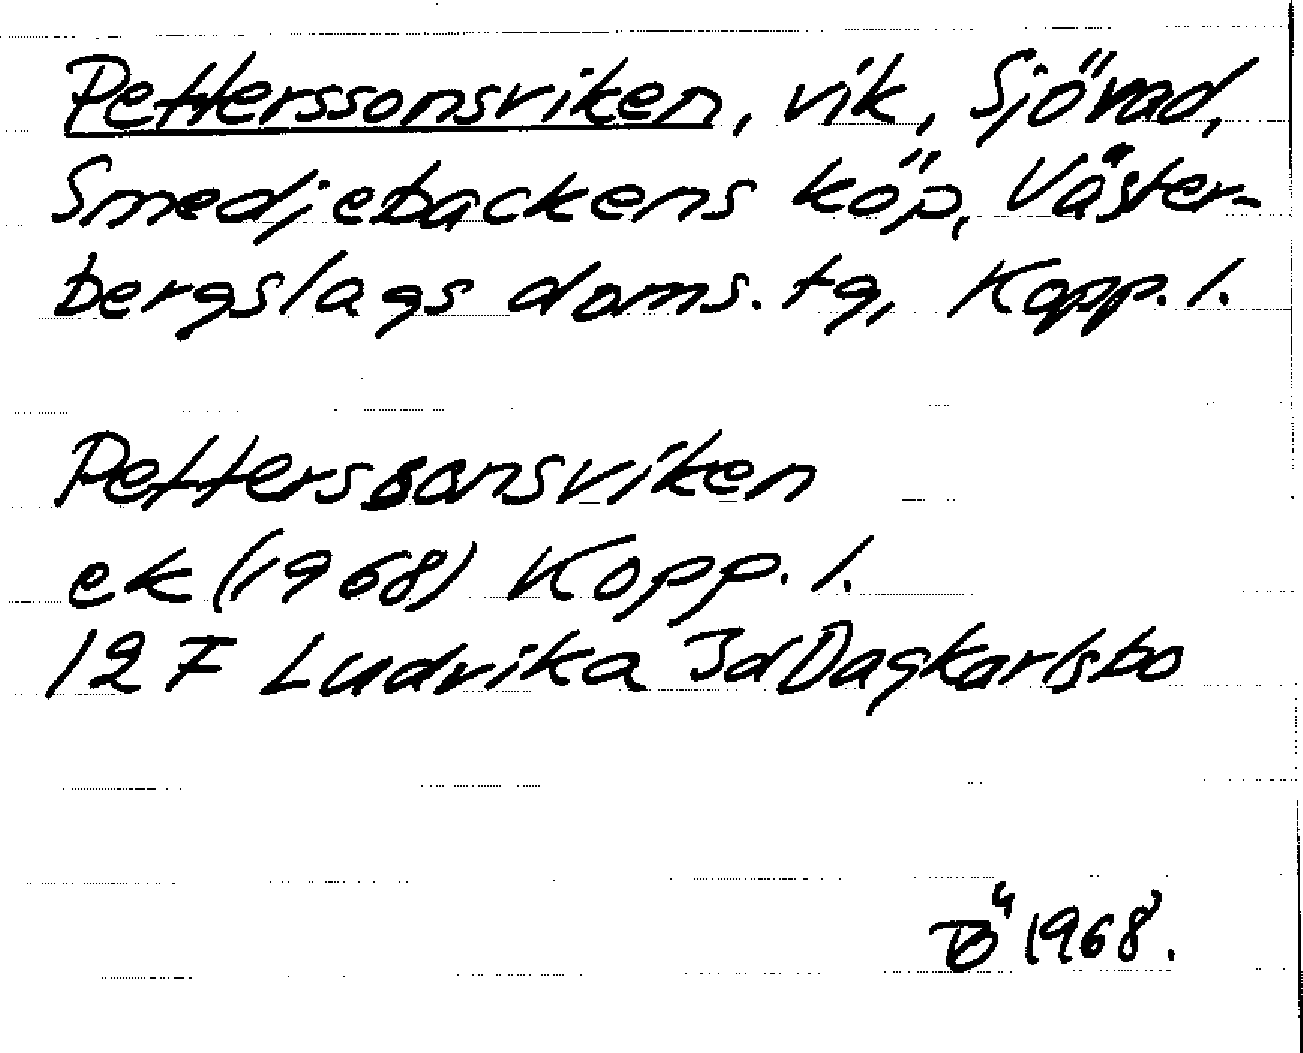 Petterssonsviken, vik, Sjövad,
Smedjebackens köp, Väster-
bergslags doms. tg, Kopp. l.
Petterssonsviken
ek (1968) Kopp. l.
12 F Ludvika 3d Dagkarlsbo
1968.